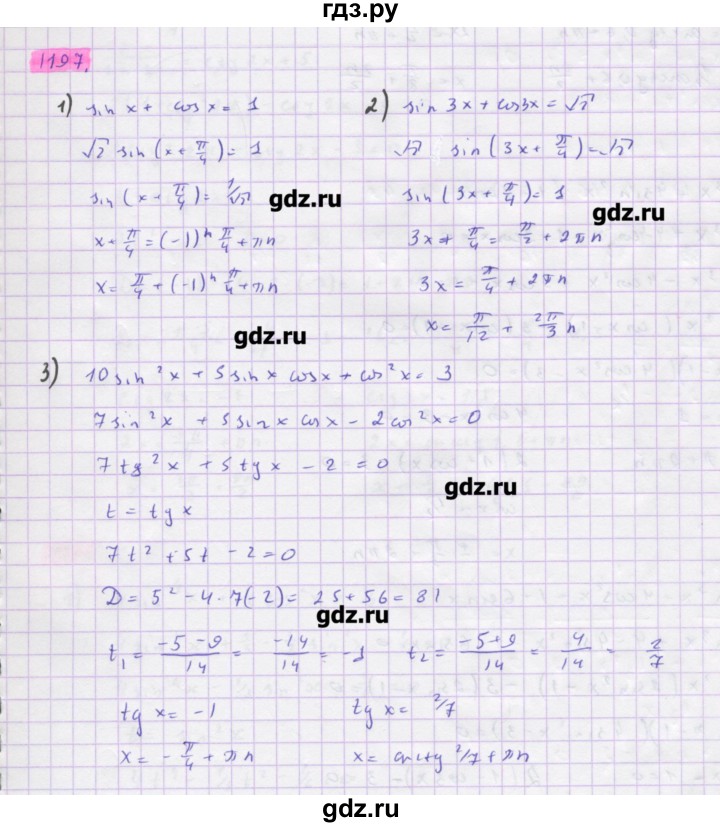 гдз.ру
1197.
1) sin x + cos x = 1
√2 sin (x + π/4) = 1
sin (x + π/4) = 1/√2
x + π/4 = (-1)ⁿ π/4 + πn
x = π/4 + (-1)ⁿ π/4 + πn
2) sin 3x + cos 3x = √2
√2 sin (3x + π/4) = √2
sin (3x + π/4) = 1
3x + π/4 = π/2 + 2πn
3x = π/4 + 2πn
x = π/12 + 2π/3 n
gdz.ru
gdz.ru
gdz.ru
3) 10 sin²x + 5 sin x cos x + cos²x = 3
7 sin²x + 5 sin x cos x - 2 cos²x = 0
7 tg²x + 5 tg x - 2 = 0
gdz.ru
t = tg x
7t² + 5t - 2 = 0
D = 5² - 4 · 7(-2) = 25 + 56 = 81
gdz.ru
t₁ = -5-9/14 = -14/14 = -1 t₂ = -5+9/14 = 4/14 = 2/7
tg x = -1 tg x = 2/7
x = -π/4 + πn x = arctg 2/7 + πn
gdz.ru